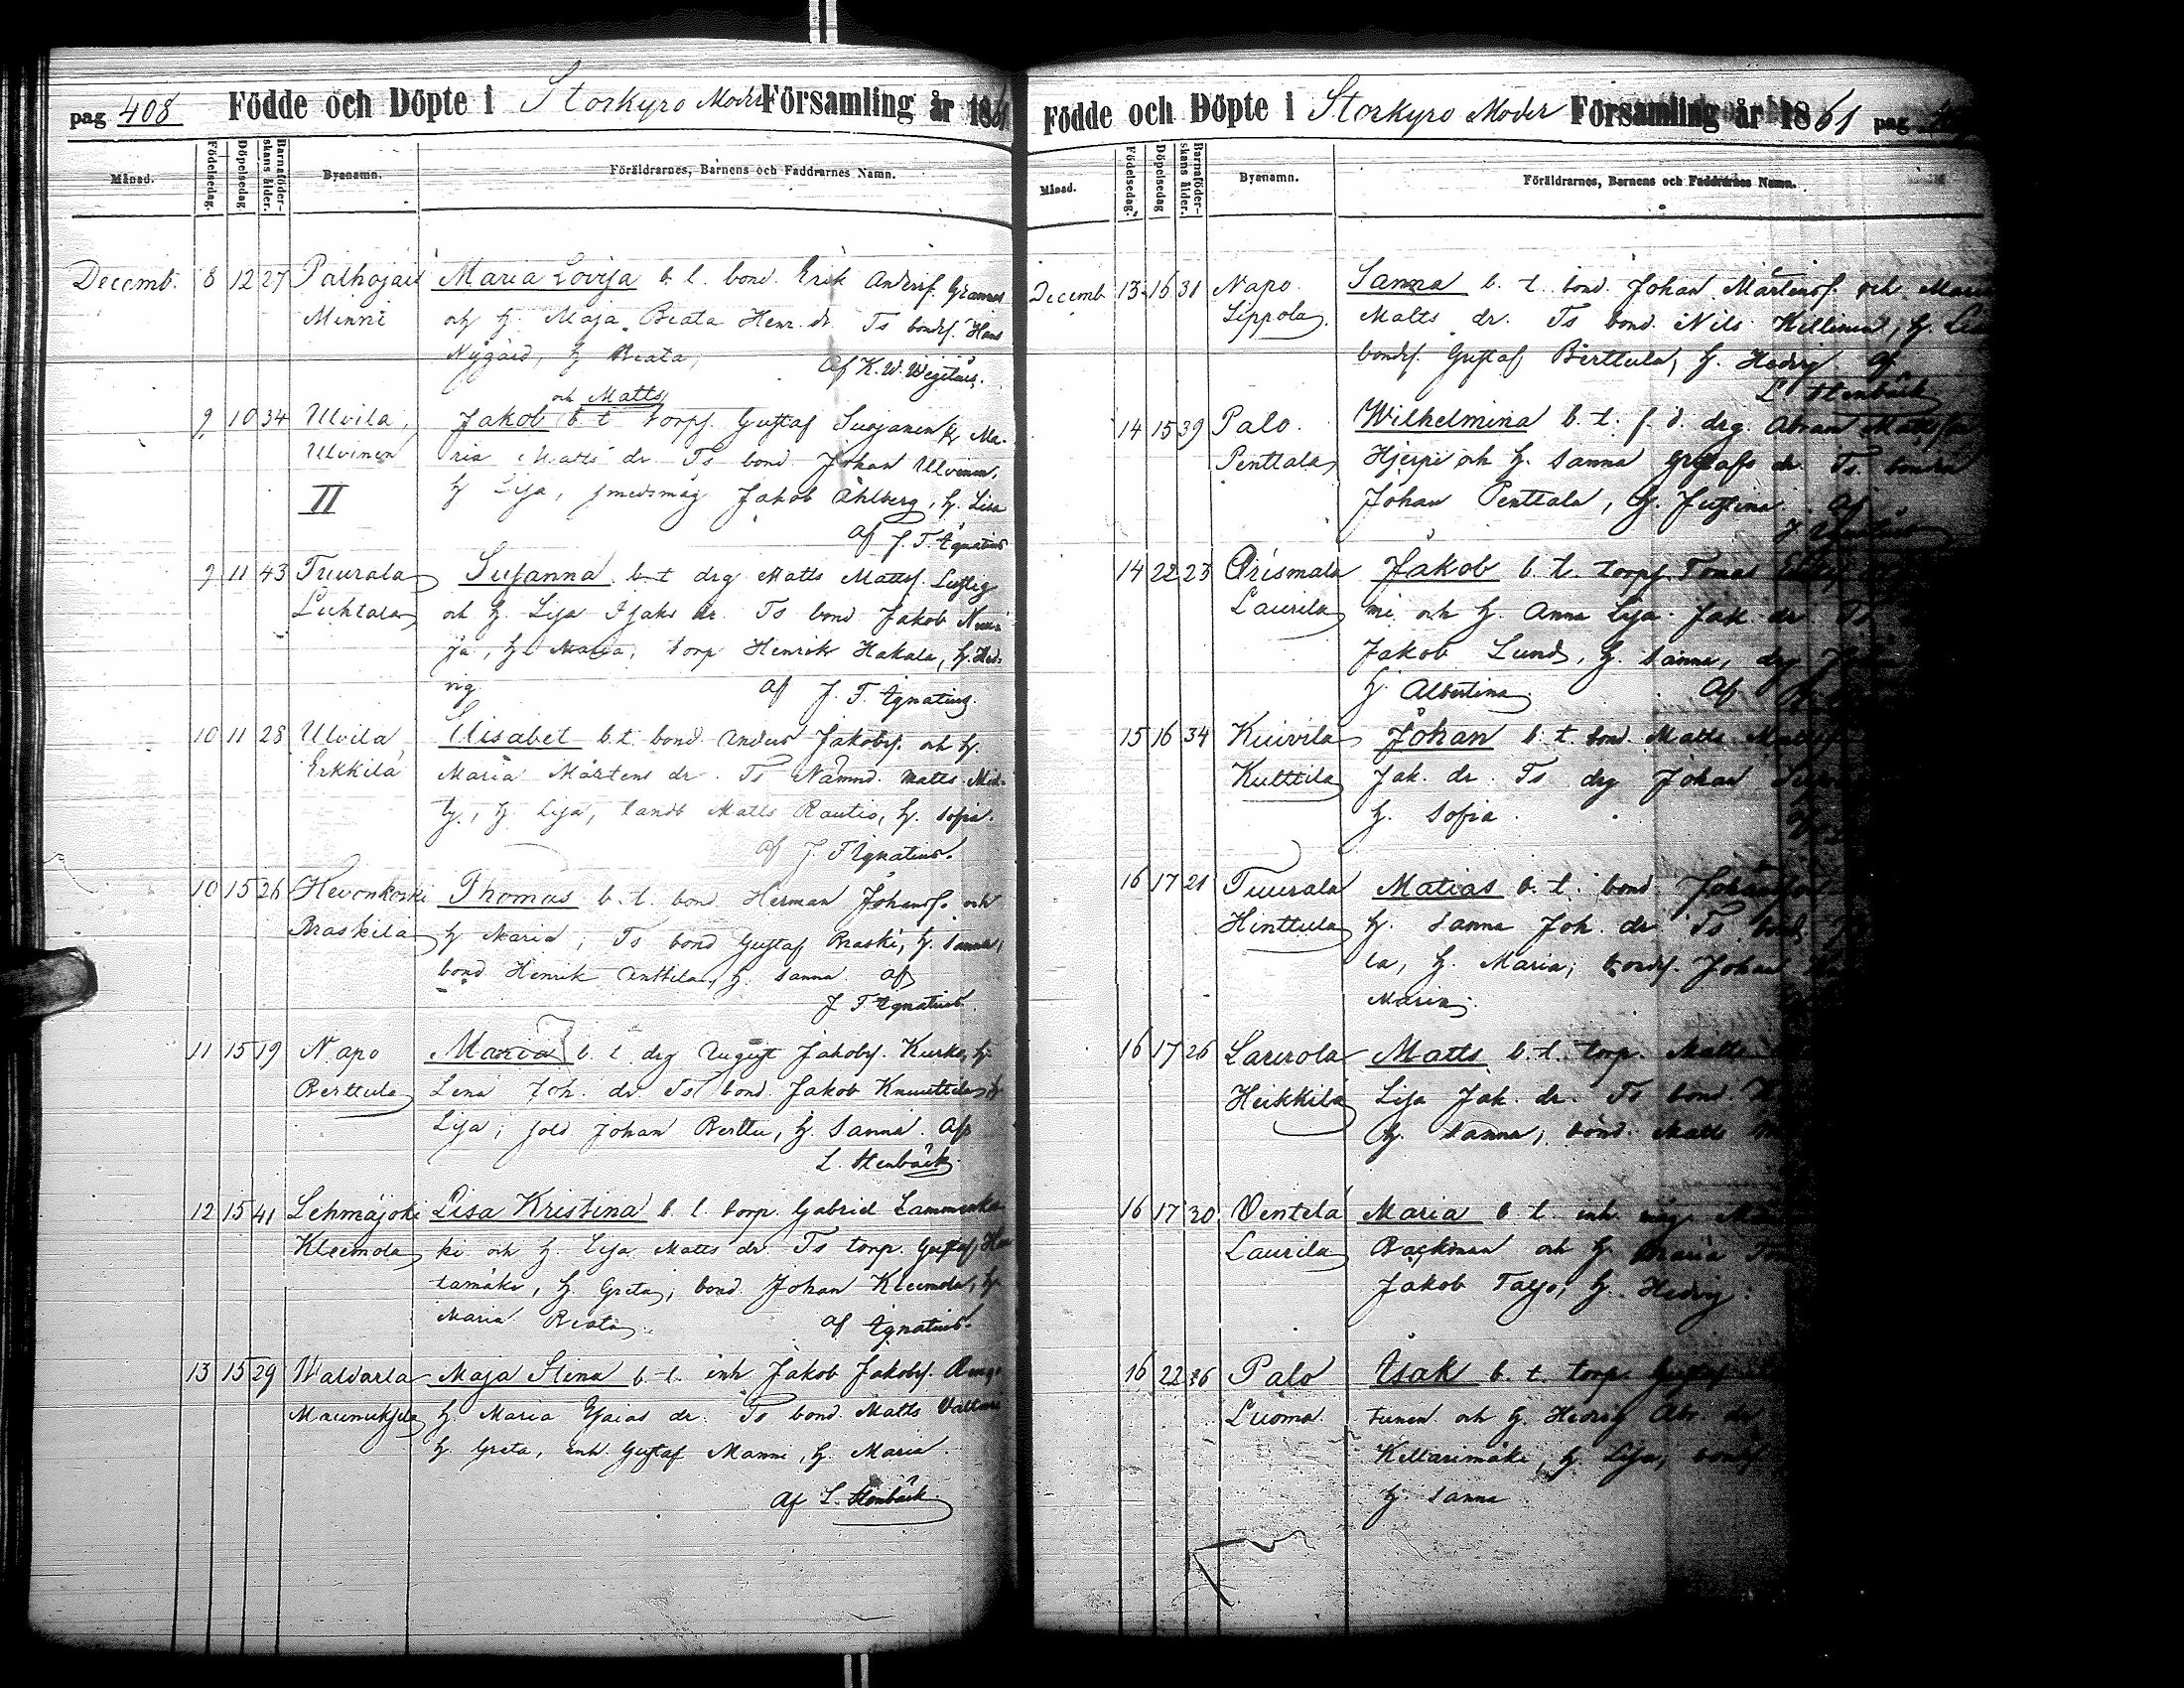 pag 408 Födde och Döpte i Storkyro Moder Församling år 1861
Månad. Födelsedag. Döpelsedag. Barnaföderskans ålder. Byanamn. Föräldrarnes, Barnens och Faddrarnes Namn.
Decemb. 8 12 27 Palhojais Maria Lovisa b. t. bond. Erik Andersf. Grannas
Minni och h. Maja Beata Henr. dr. Ts bondf. Hans
Nygård, h Beata,
Af K. W. Wegelius.
och Matts
9 10 34 Ulvila, Jakob b t torpf. Gustaf Suojanen h Ma-
Ulvinen ria Matts dr Ts bond Johan Ulvinen,
II h Lisa, smedsmåg Jakob Åhlberg, h. Lisa
af J. F. Ignatius
9 11 43 Tuurala Susanna b. t drg Matts Mattsf. Lustig
Luhtala och h. Lisa Isaks dr. Ts bond Jakob
jä, h Maria, torp Henrik Hakala, h. Hed-
vig af J. F. Ignatius.
10 11 28 Ulvila Elisabet b. t. bond. Anders Jakobsf. och h.
Erkkilä Maria Mårtens dr. Ts Nämnd. Matts
h Lisa, landb Matts Rautio, h. Sofia.
af J. F Ignatius.
10 15 26 Hevonkoski Thomas b. t. bond Herman Johansf. och
Praskila h Maria; Ts bond Gustaf Praski, h. Sanna,
bond Henrik Anttila, h. Sanna af
J F Ignatius.
11 15 19 Napo Maria b. t. drg August Jakobsf. Kurko, h.
Berttula Lena Joh. dr Ts bond. Jakob Knuuttila h
Lisa; sold Johan Berttu, h. Sanna. Af
L. Stenbäck.
12 15 41 Lehmäjoki Lisa Kristina b. t. torp. Gabriel Lammenkos-
Kleemola ki och h. Lisa Matts dr Ts torp. Gustaf
tamäki, h. Greta; bond. Johan Kleemola, h
Maria Beata af Ignatius.
13 15 29 Waldarla Maja Stina b. t. inh Jakob Jakobsf.
Maunuksela h. Maria Esaias dr. Ts bond. Matts Valtari
h. Greta, inh. Gustaf Manni, h. Maria.
Af L. Stenbäck.
Födde och Döpte i Storkyro Moder Församling år 1861 pag
Månad. Födelsedag. Döpelsedag Barnaföderskans ålder. Byanamn. Föräldrarnes, Barnens och Faddrarnes Namn.
Decemb 13 16 31 Napo. Sanna b. t. bond. Johan Mårtensf. och Maria
Lippola Matts dr. Ts bond. Nils Killinen, h. Lisa
bondf. Gustaf Berttula, h. Hedvig af
L. Stenbäck
14 15 39 Palo. Wilhelmina b. t. f. d. drg. Abram Mattsson
Penttala Hjerpe och h. Sanna Gustafs dr. Ts. bonden
Johan Penttala, h. Justina. Af
J Ignatius
14 22 23 Orismala Jakob b. t. torpf. Tomas
Laurila mi och h. Anna Lisa Jak. dr. Ts
Jakob Lund, h. Sanna, drg
h. Albertina. Af
15 16 34 Kuivila Johan b. t. bond. Matts
Kuttila Jak. dr. Ts drg Johan
h. Sofia.
16 17 21 Tuurala Matias b. t. bond.
Hinttula h. Sanna Joh. dr Ts bond.
la, h. Maria; bondf. Johan
Maria.
16 17 26 Laurola Matts b. t. torp. Matts
Heikkilä Lisa Jak. dr. Ts bond.
h. Sanna; bond. Matts
16 17 30 Ventelä Maria b. t. inh. måg
Laurila Backman och h. Maria
Jakob Talso, h. Hedvig.
16 22 26 Palo Isak b. t. torp. Gustaf
Luoma. tunen och h. Hedvig Abr. dr
Keltarimäki, h. Lisa, bondf
h. Sanna